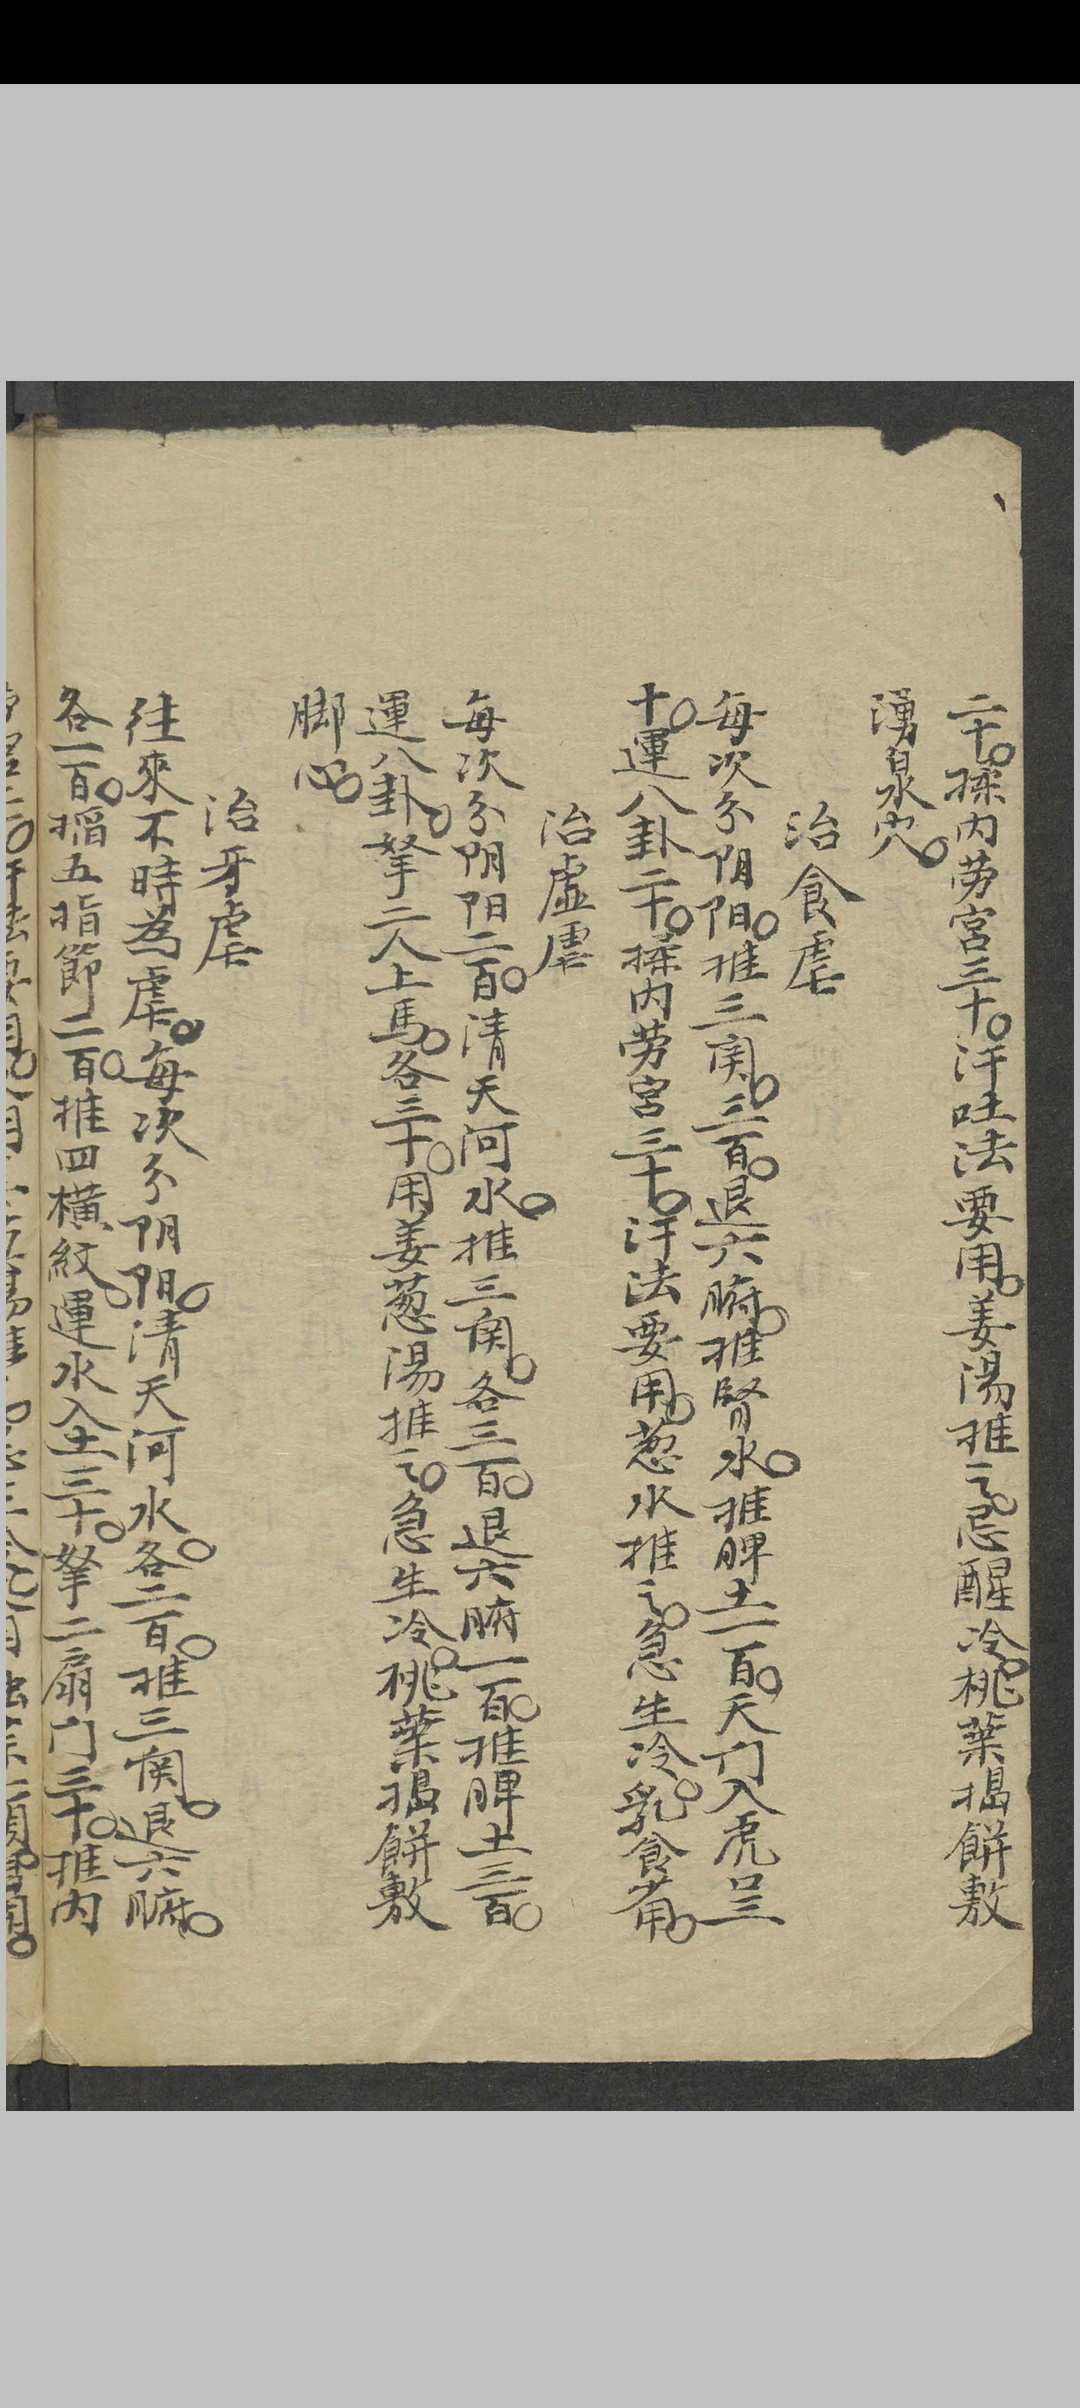 二十。揉内劳宫三十。汗吐法要用。姜湯推之。忌醒冷。桃葉搗餅敷
湧泉穴。
治食虐
每次分阴阳。推三関。三百。退六腑。推腎水。推脾土一百。天门入虎口三
十。運八卦二十。揉内劳宫三十。汗法要用。葱水推之。急生冷。乳食莆。
治虛虐
每次分阴阳二百。清天河水。推三関。各三百。退六腑一百。推脾土三百。
運八卦。拏二人上馬。各三十。用姜葱湯推之。急生冷。桃葉搗餅敷
脚心。
治牙虐
往來不時為虐。每次分阴阳。清天河水。各二百。推三関。退六腑。
各一百。搯五指節二百。推四横紋。運水入土三十。拏二扇门三十。推内